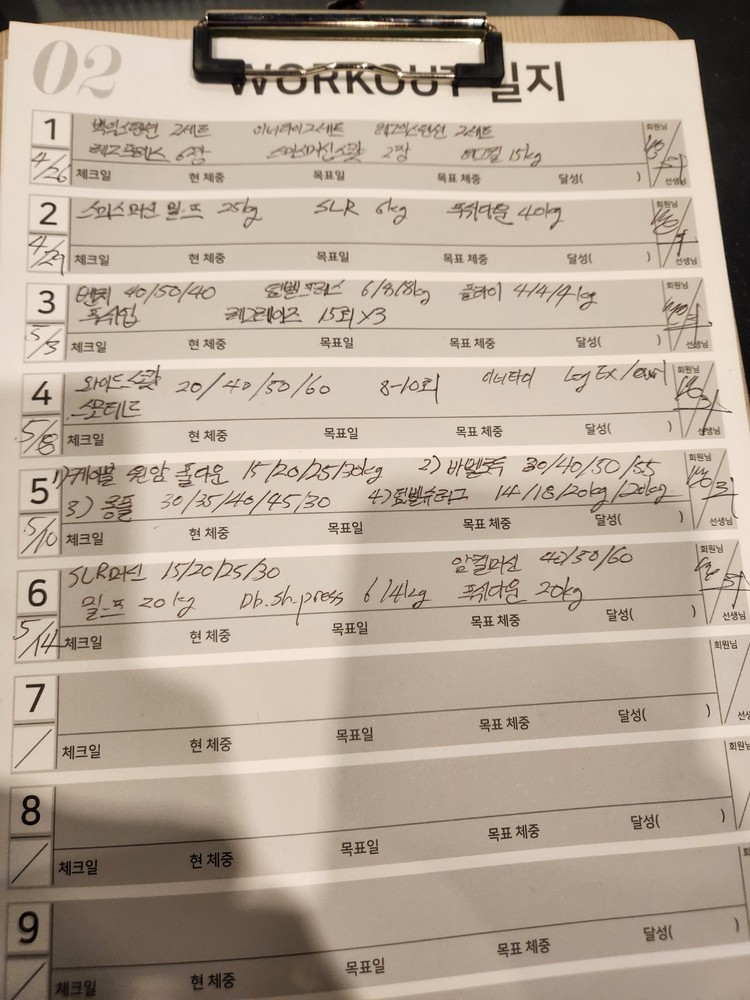 02
WORKOUT 일지
1
백익스텐션 2세트 이너타이 2세트 레그익스텐션 2세트
레그프레스 6장 스미스머신스쿼트 2장 15kg
4/26
체크일 현 체중 목표일 목표 체중 달성( )
회원님
선생님
2
스미스머신 밀.프 25kg SLR 6kg 푸쉬다운 40kg
4/29
체크일 현 체중 목표일 목표 체중 달성( )
회원님
선생님
3
벤치 40/50/40 덤벨프레스 6/8/8kg 플라이 4/4/4kg
푸쉬업 레그레이즈 15회 X3
5/3
체크일 현 체중 목표일 목표 체중 달성( )
회원님
선생님
4
와이드스쿼트 20/40/50/60 8-10회 이너타이 Leg Ex /
5/8
체크일 현 체중 목표일 목표 체중 달성( )
회원님
선생님
5
1) 케이블 원암 풀다운 15/20/25/30kg 2) 바벨로우 30/40/50/55
3) 롱풀 30/35/40/45/30 4) 덤벨슈러그 14/18/20kg/20kg
5/10
체크일 현 체중 목표일 목표 체중 달성( )
회원님
선생님
6
SLR머신 15/20/25/30 암컬머신 40/50/60
밀.프 20kg Db.sh.press 6/4kg 푸쉬다운 20kg
5/14
체크일 현 체중 목표일 목표 체중 달성( )
회원님
선생님
7
/
체크일 현 체중 목표일 목표 체중 달성( )
회원님
선생
8
/
체크일 현 체중 목표일 목표 체중 달성( )
회원님
9
/
체크일 현 체중 목표일 목표 체중 달성( )